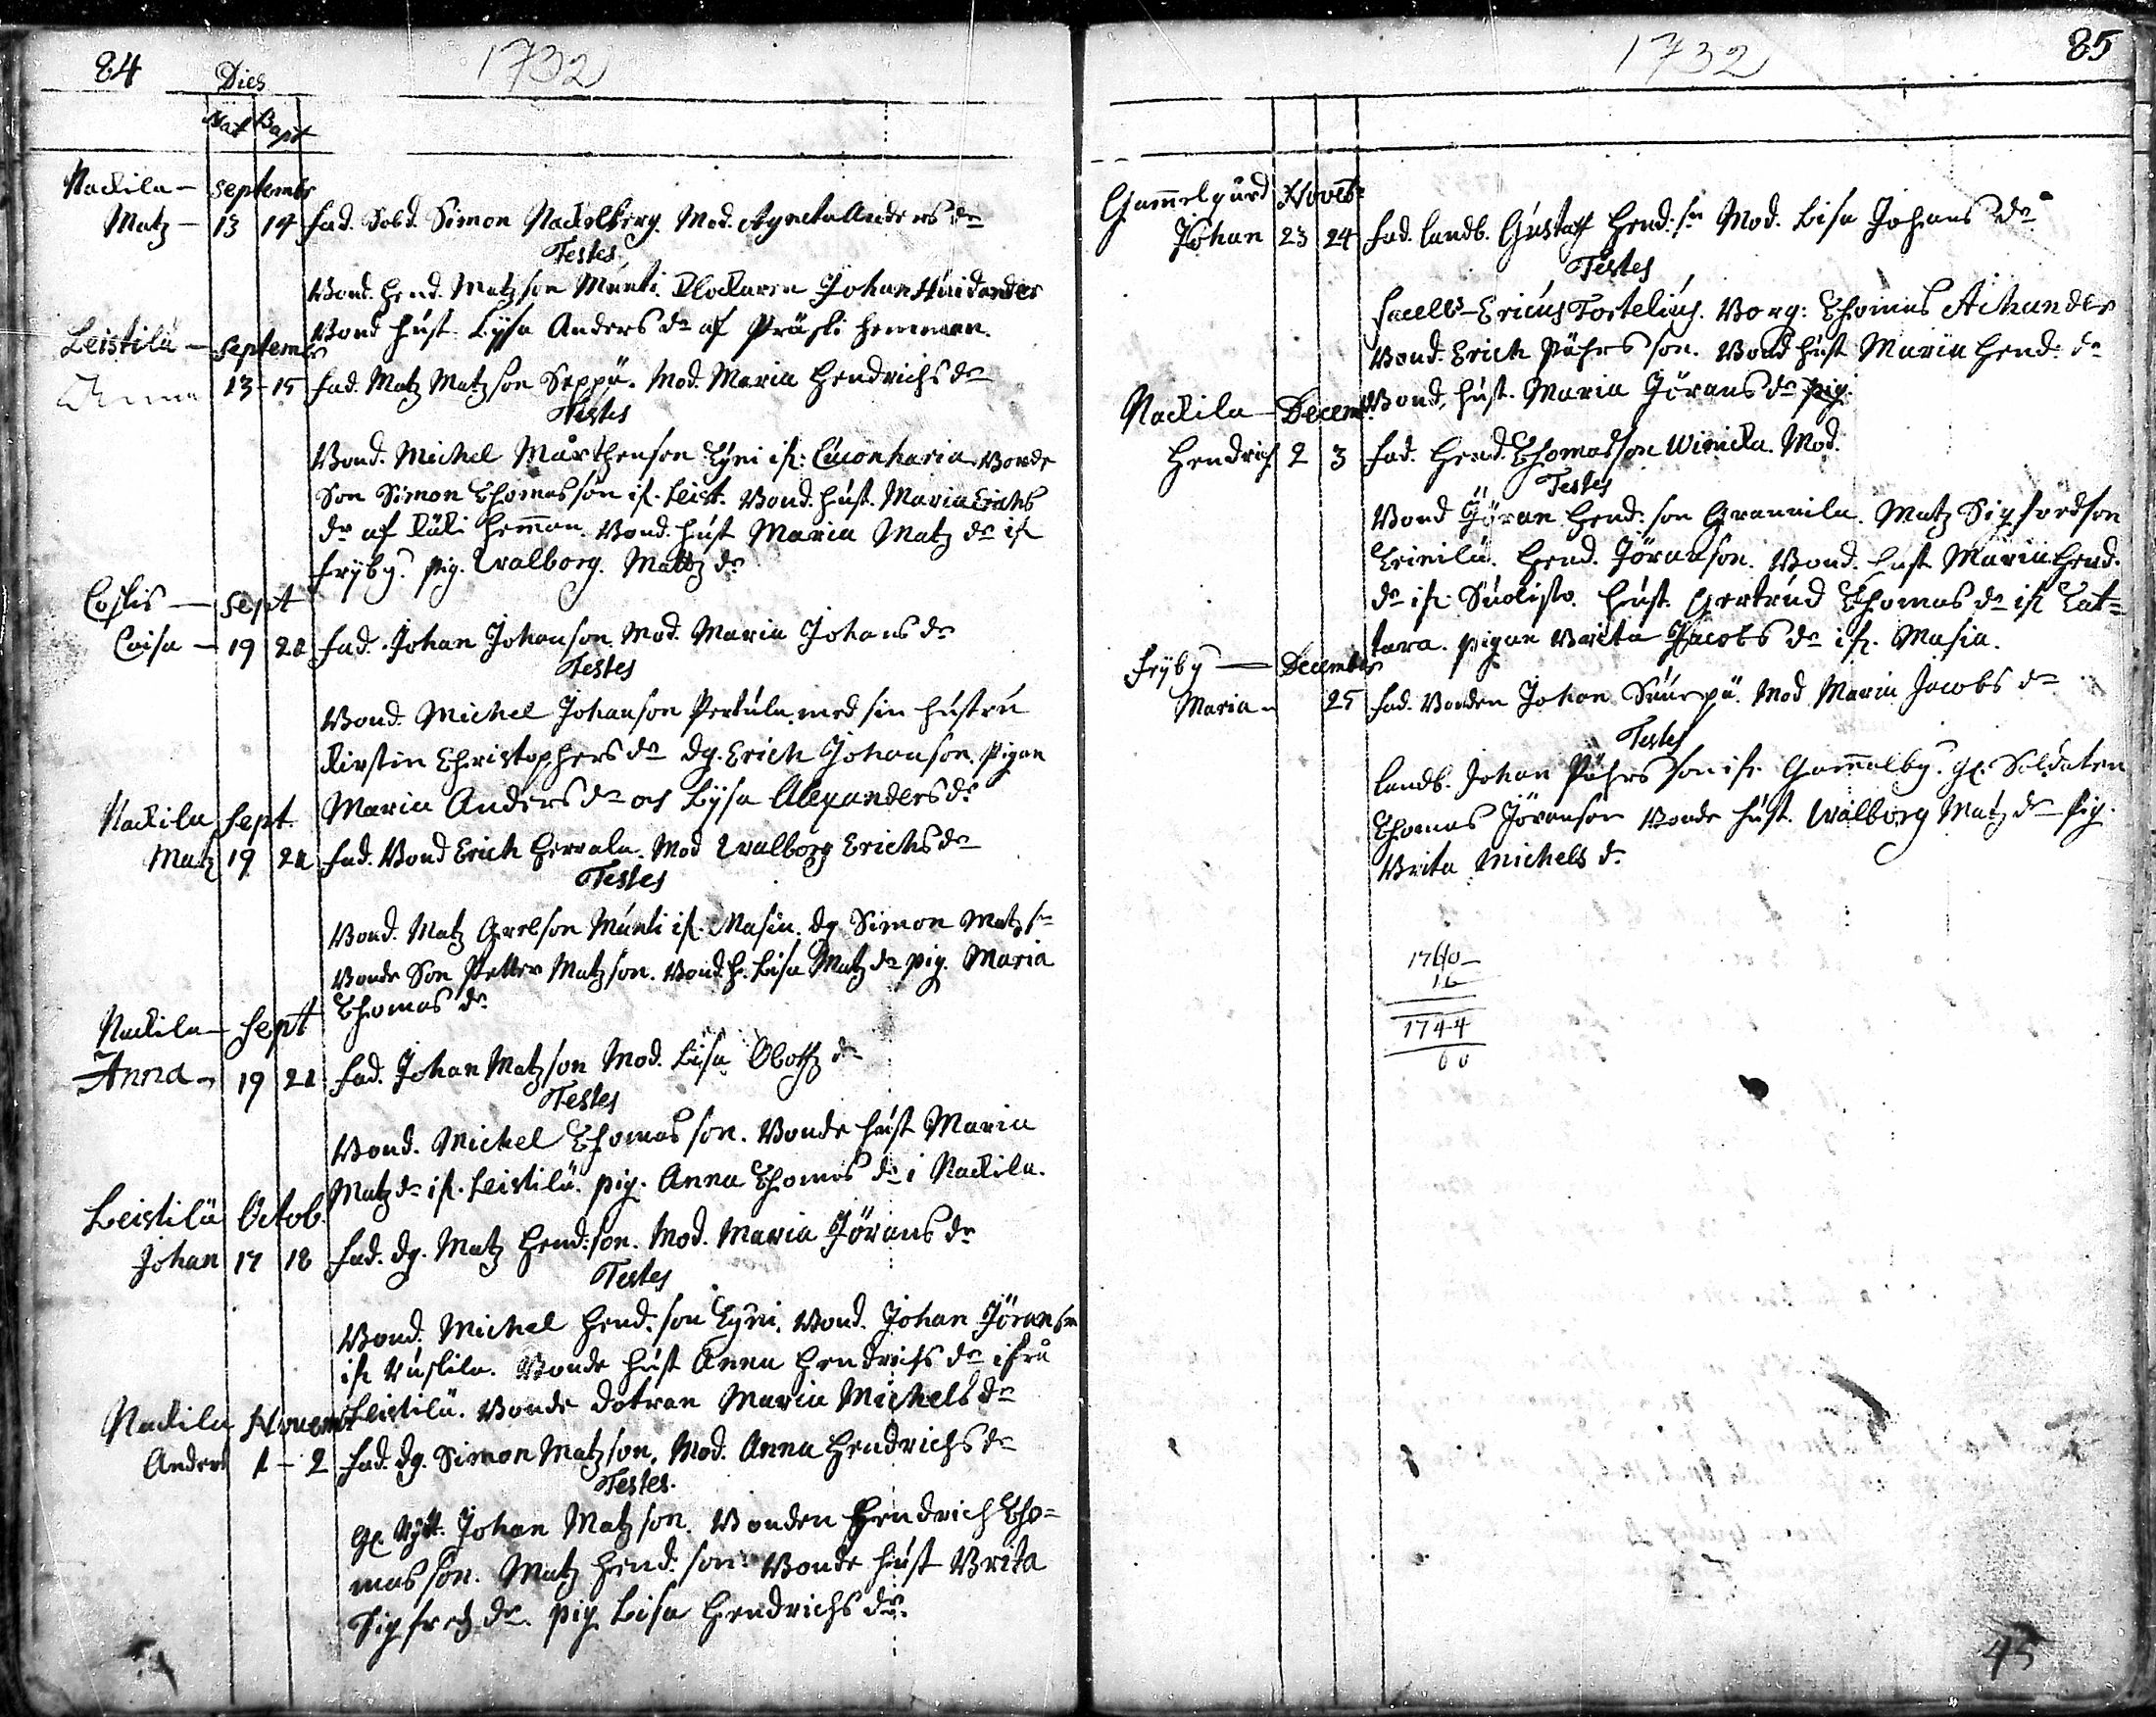 84 Dies 1732
Nat Bapt
Nackila – Septembr
Matz – 13 14 Fad. Sold. Simon Nackelberg. Mod. Agneta Anders dr
Testes
Bond. Hend. Matzson Munti. Klockaren Johan
Bond hust. Lysa Anders dr af Präfti hemman.
Leistilä – Septembr
Anna 13 – 15 Fad. Matz Matzson Seppä. Mod. Maria Hendrichs dr
Testes
Bond. Michel Mårthenson Lyni if: Bonde
Son Simon Thomasson if. Leist. Bond. hust. Maria Erichs
dr af Käki hemman. Bond. hust Maria Matz dr if
Fryby. pig. Walborg. Mattz dr
– Sept
Caisa – 19 21 Fad. Johan Johanson Mod. Maria Johans dr
Testes
Bond. Michel Johanson Pertula. med sin hustru
Kirstin Christophers dr dg. Erich Johanson. Pigan
Maria Anders dr och Lysa Alexanders dr
Nackila Sept.
Matz 19 21 Fad. Bond Erich Herrala. Mod Walborg Erichs dr
Testes
Bond. Matz Grelson Munti if. Masia. dg. Simon Matz sn
Bonde Son Petter Matzson. Bond. h. Lisa Matz dr pig. Maria
Thomas dr
Nackila – Sept
Anna – 19 21 Fad. Johan Matzson Mod. Lisa dr
Testes
Bond. Michel Thomasson. Bonde hust Maria
Matz dr if. Leistilä. pig. Anna Thomas dr i Nackila.
Leistilä Octob.
Johan 17 18 Fad. dg. Matz Hend: son. Mod. Maria Jörans dr
Testes
Bond. Michel Hend. son Lyni. Bond. Johan Jöranson
if Ruskila. Bonde hust Anna Hendrichs dr ifrå
Leistilä. Bonde dotran Maria Michels dr
Nackila Novemb
Anders 1 – 2 Fad. dg. Simon Matzson. Mod. Anna Hendrichs dr
Testes.
gl. Rytt. Johan Matzson. Bonden Hendrich Tho=
masson. Matz Hend. son. Bonde hust Brita
Sigfredz dr. pig Lisa Hendrichs dr.
1732 85
Gammelgård Noveb:
Johan 23 24 Fad. landb. Gustaf Hend: sn Mod. Lisa Johans dr
Testes
Sacells – Ericus Fortelius. Borg: Thomas Achander
Bond. Erich Påhrsson. Bond hust Maria Hend: dr
Bond. hust. Maria Jörans dr pig.
Nackila – Decemb
Hendrich 2 3 Fad. Hend. Thomasson Winicka. Mod.
Testes
Bond Jöran Hend: son Grannila. Matz Sigfredson
Leinilä. Hend. Jöranson. Bond. hust Maria Hend.
dr if. Suolisto. hust. Gertrud Thomas dr if Lat=
tara. pigan Brita Jacobs dr if. Masia.
Fryby – December
Maria – 25 Fad. Bonden Johan Suurpä. Mod Maria Jacobs dr
Testes
landb. Johan Påhrsson if. Gammalby. gl. Soldaten
Thomas Jöranson Bonde hust. Walborg Matz dr pig.
Brita Michels dr
1760 –
16
1744
60
45